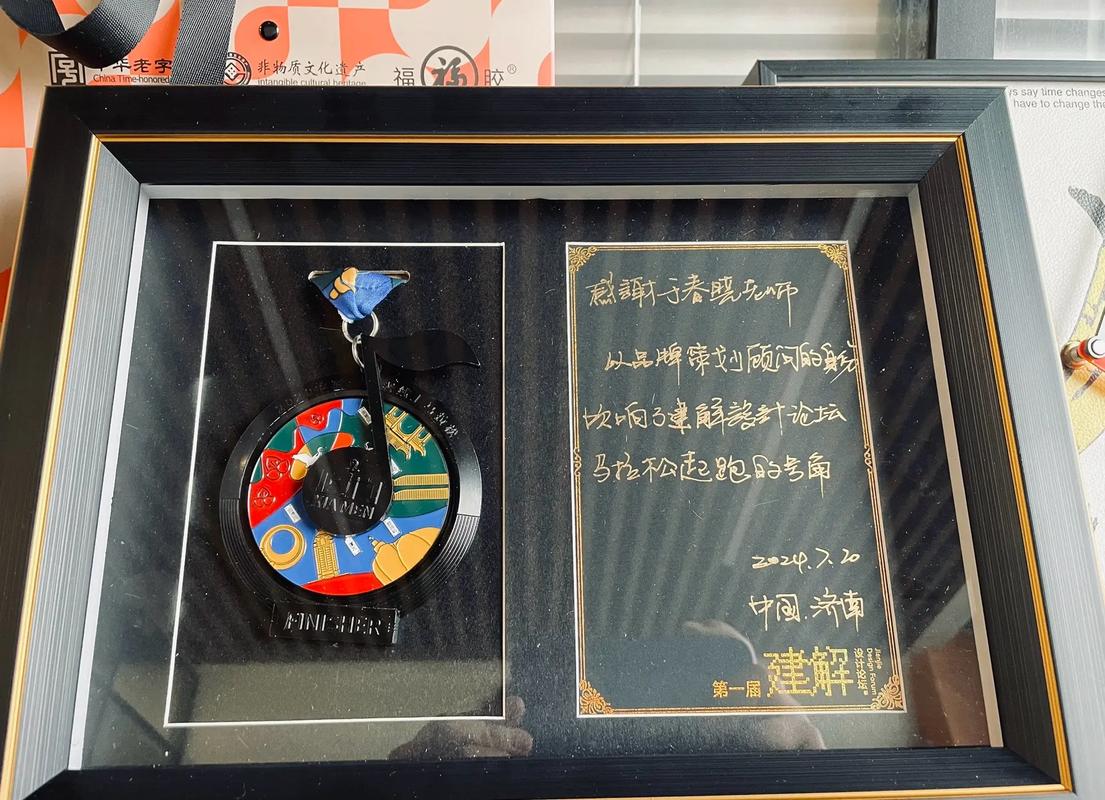 中华老字
China Time-honored
非物质文化遗产
intangible cultural heritage
福 福 胶®
ys say time changes
have to change the
XIAMEN
FINISHER
感謝于春曉老师
以品牌策划顾问的身份
吹响了建解設計论坛
马拉松起跑的号角
2024.7.20
中国.济南
第一届
建解
设计论坛
Jianjie
Design Forum